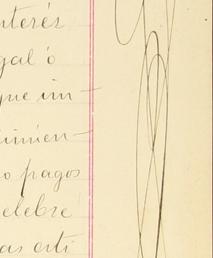 nterés
gal ó
que im-
imien-
o pagos
elebré
as esti